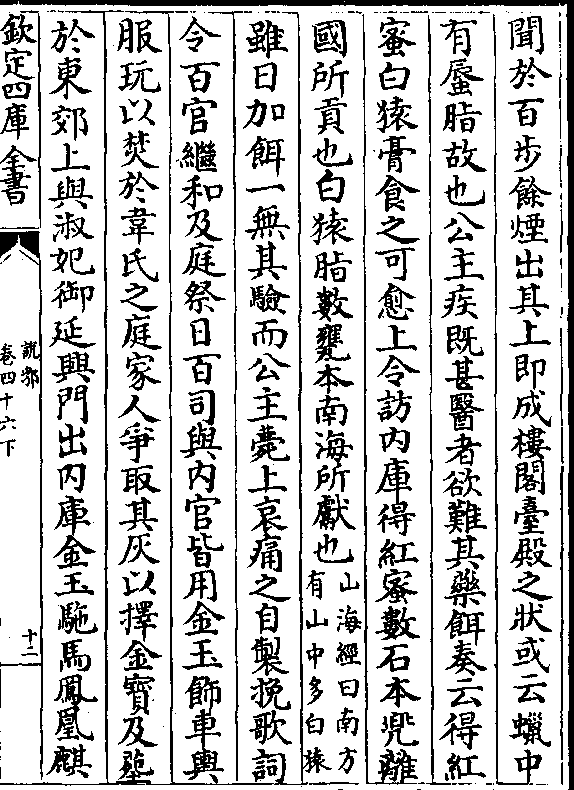 聞於百步餘煙出其上即成樓閣臺殿之狀或云蠟中
有蜃脂故也公主疾既甚醫者欲難其藥餌奏云得紅
蜜白猿膏食之可愈上令訪内庫得紅蜜數石本兠離
國所貢也白猿脂數甕本南海所獻也山海經曰南方
有山中多白猿
雖日加餌一無其驗而公主薨上哀痛之自製挽歌詞
令百官繼和及庭祭日百司與内官皆用金玉飾車輿
服玩以焚於韋氏之庭家人爭取其灰以擇金寳及塟
於東郊上與淑妃御延興門出内庫金玉駞馬鳳凰麒
欽定四庫全書
說郛
卷四十六下
十二